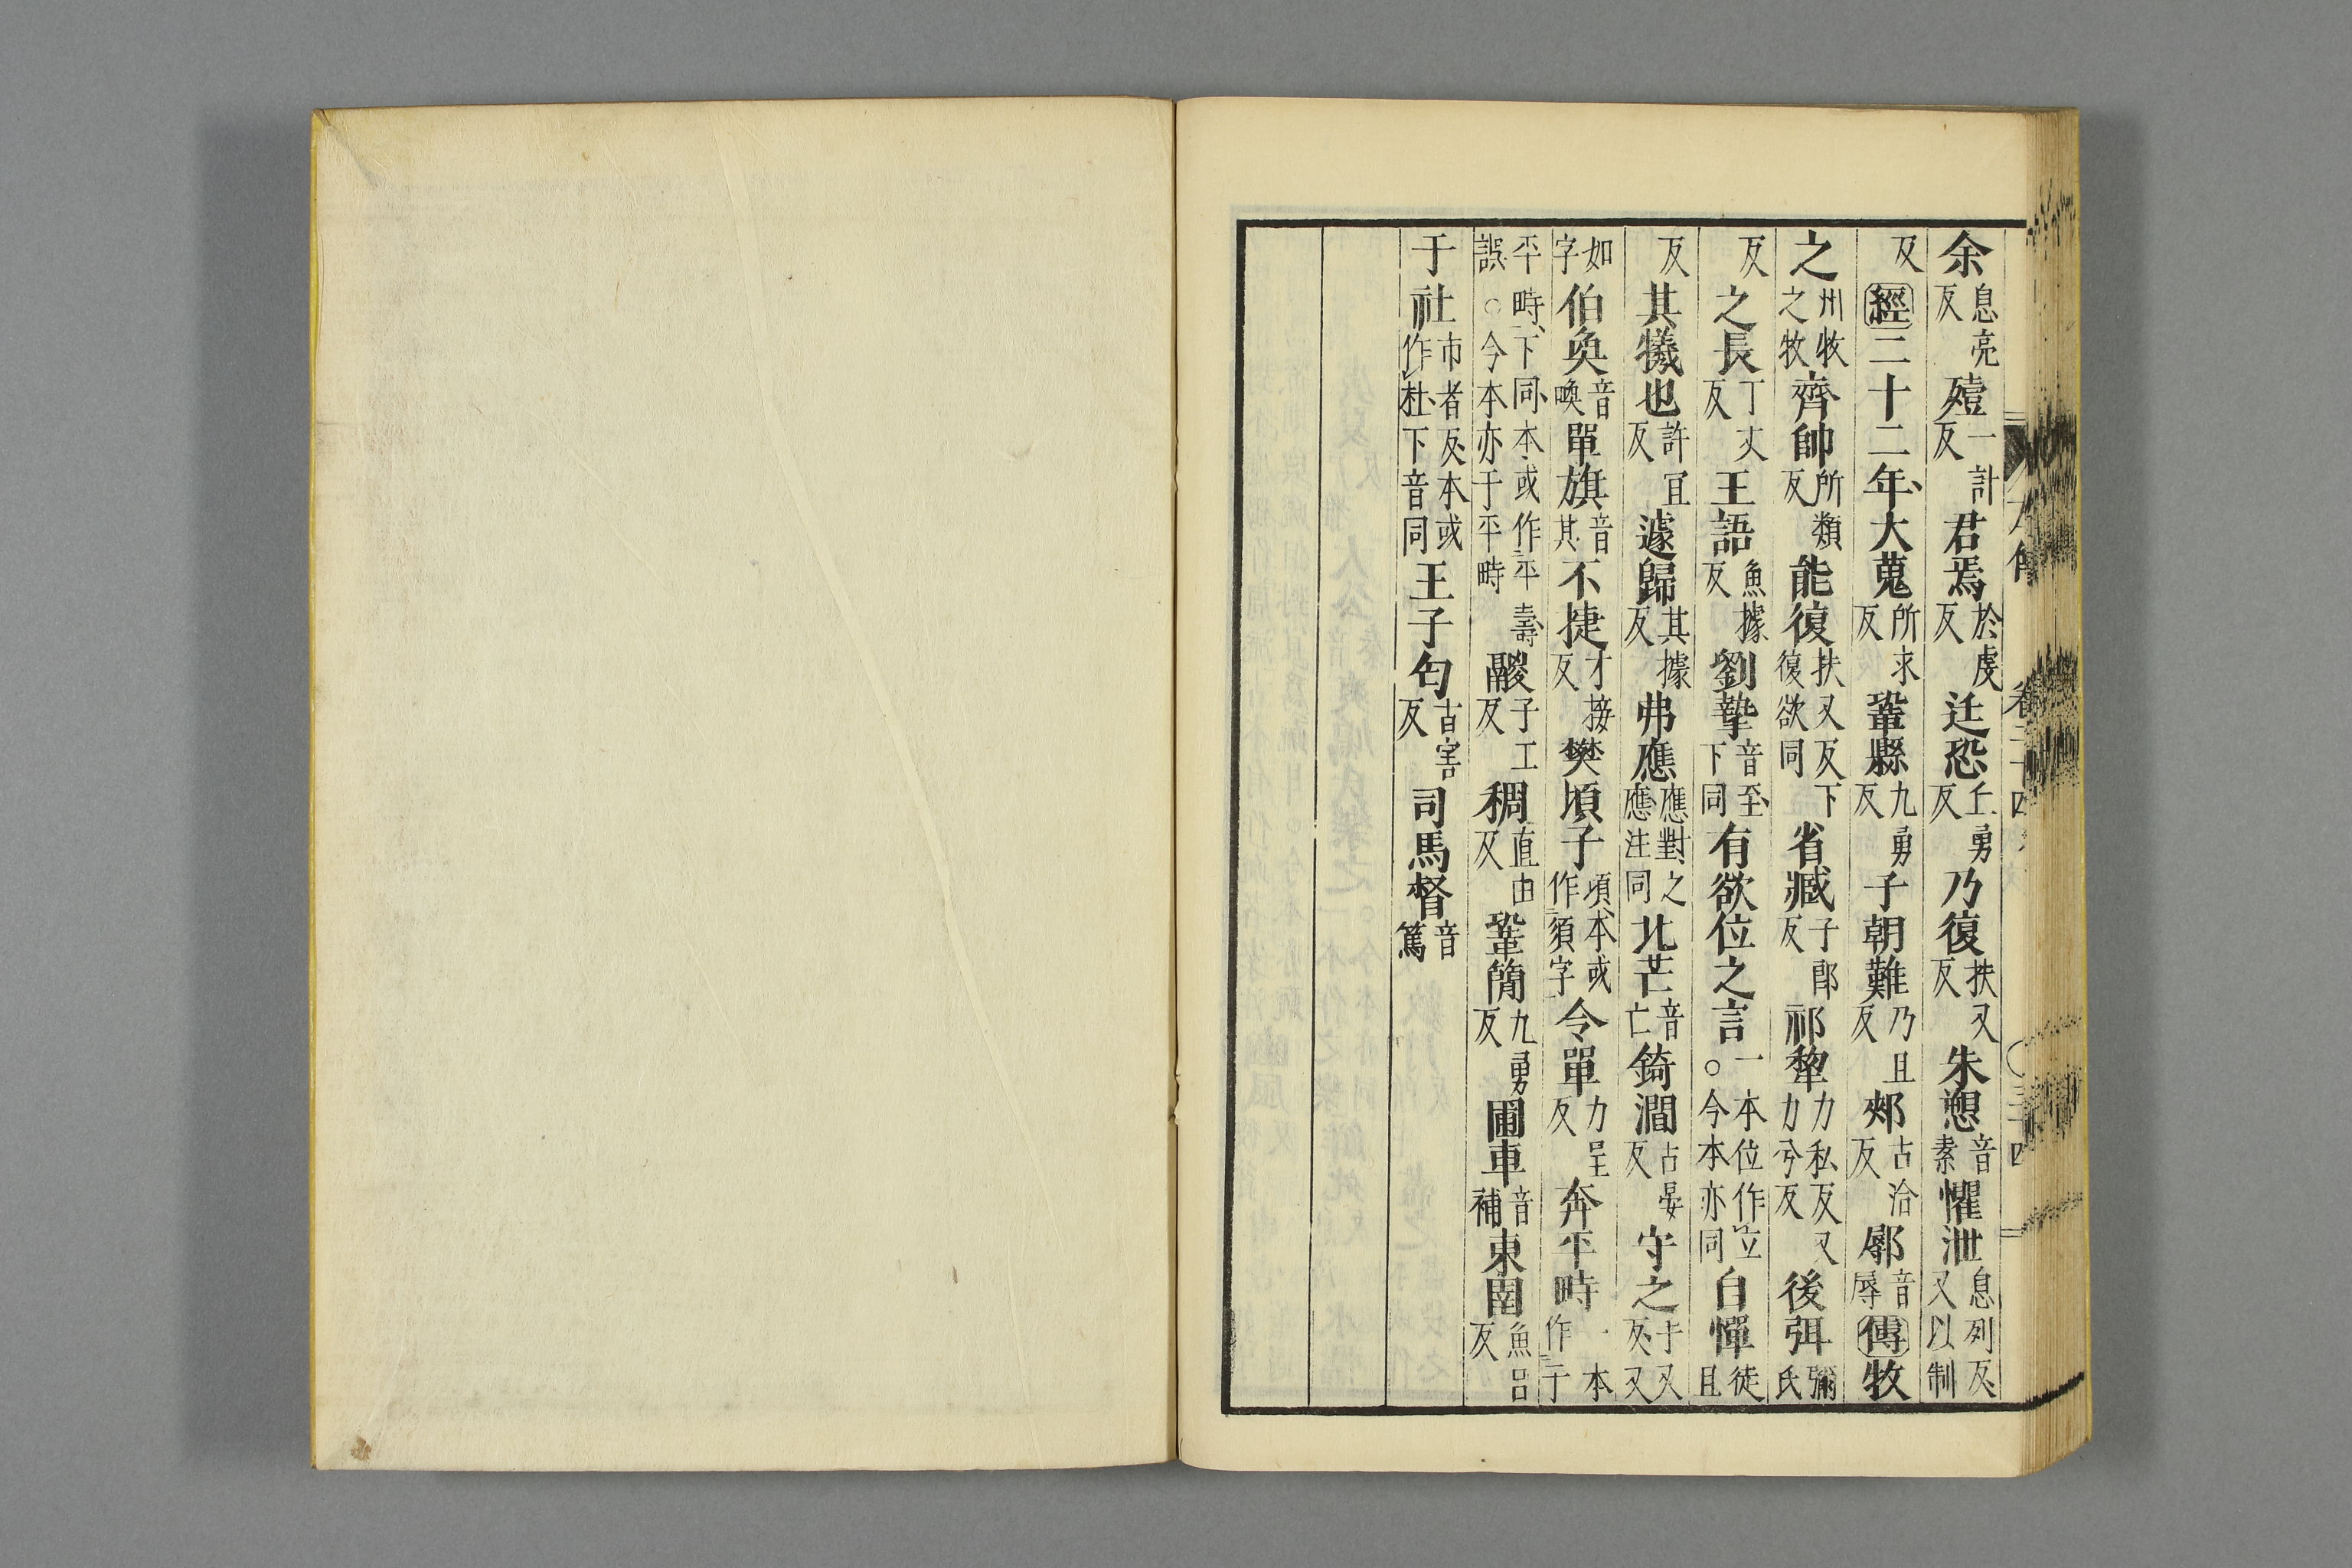 余息亮反殪一計反君焉於虔反迋恐丘勇反乃復扶又反朱愬音素懼泄息列反又以制
反經二十二年大蒐所求反鞏縣九勇反子朝難乃旦反郟古洽反鄏音辱傳牧
之州牧之牧齊帥所類反能復扶又反下復欲同省臧子郎反祁犂力私反又力兮反後弭彌氏
反之長丁丈反王語魚據反劉摯音至下同有欲位之言一本位作立○今本亦同自憚徒旦
反其犧也許宜反遽歸其據反弗應應對之應注同北芒音亡錡澗古晏反守之手又反又
如字伯奐音喚單旗音其不捷才接反樊頃子頃本或作須字令單力呈反奔平時一本作于
平時下同本或作平壽誤○今本亦于平時鬷子工反稠直由反鞏簡九勇反圃車音補東圉魚呂反
于社市者反本或作杜下音同王子匄古害反司馬督音篤